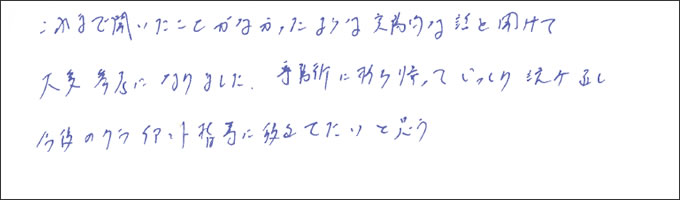 これまで聞いたことがなかったような実務的な話を聞けて
大変参考になりました。事務所に持ち帰ってじっくり読み直し
今後のクライアント指導に役立てたいと思う